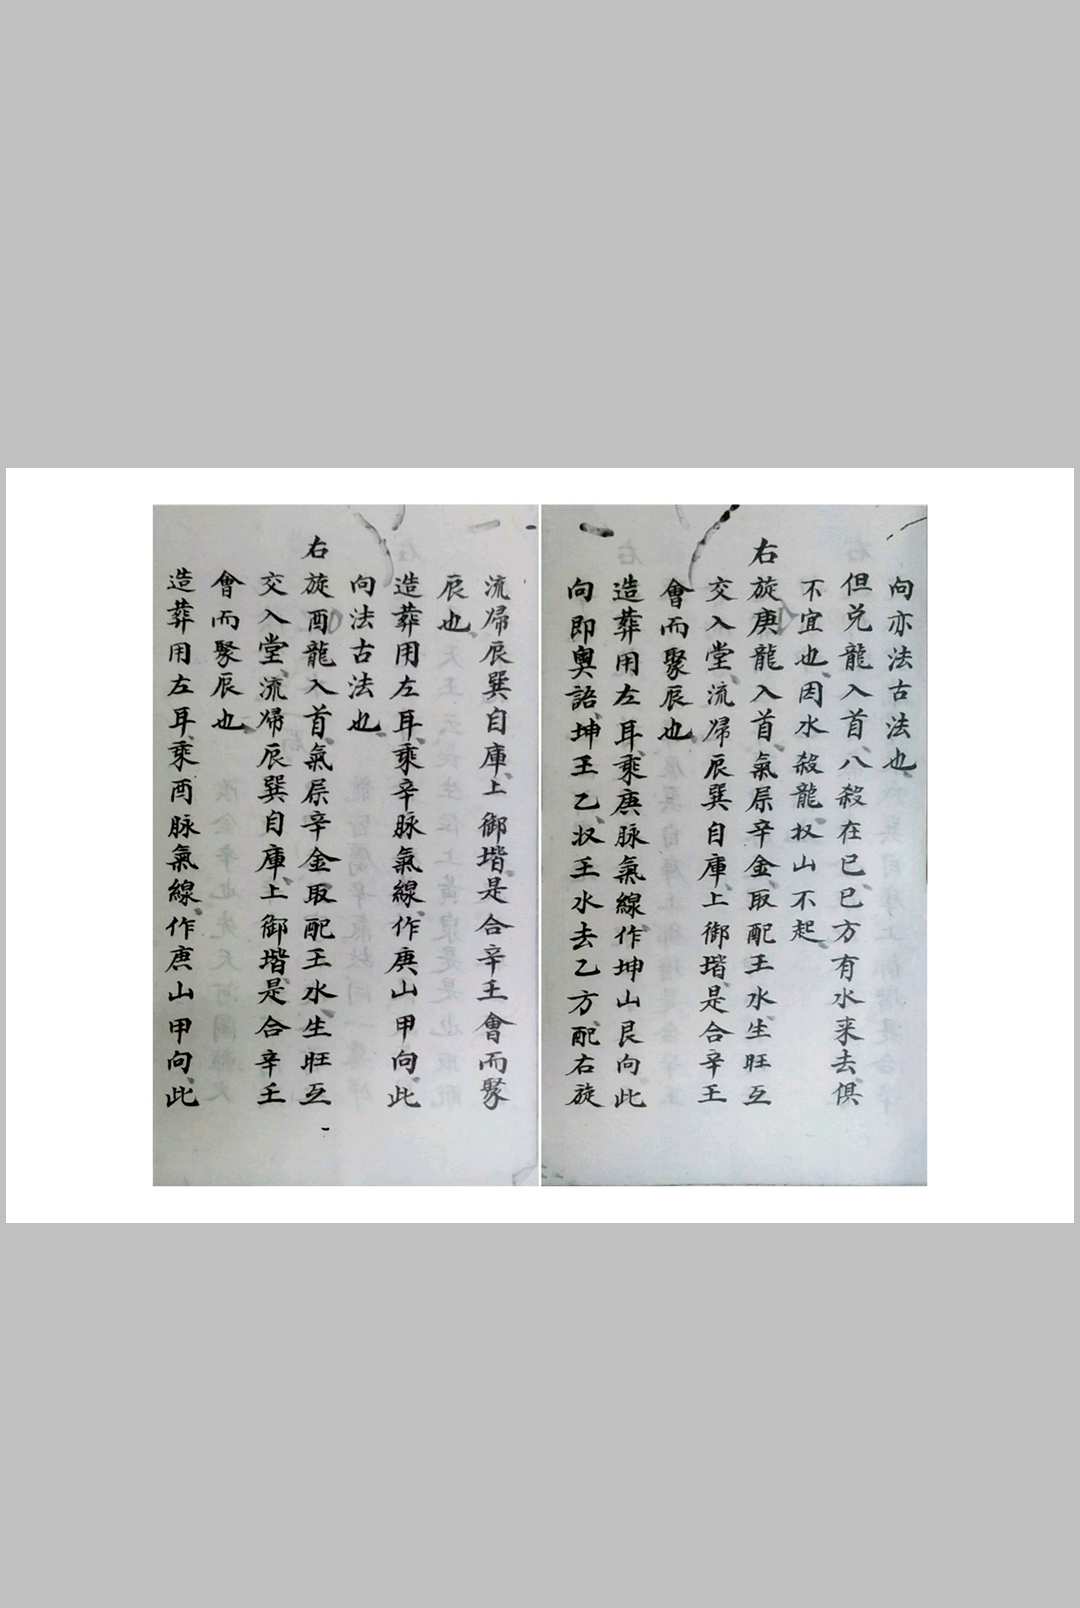 向亦法古法也、
但兑龍入首、八殺在巳、巳方有水来去、俱
不宜也、因水殺龍、収山不起、
右旋庚龍入首、氣屌辛金、取配王水、生旺互
交入堂、流㷌辰巽自庫、上御堦、是合辛王
會而聚辰也、
造葬用左耳、乘庚脉氣線、作坤山艮向、此
向即奧語、坤王乙、収王水去乙方、配右旋
流㷌辰巽自庫、上御堦、是合辛王會而聚
辰也、
造葬用左耳、乘辛脉氣線、作庚山甲向、此
向法古法也、
右旋酉龍入首、氣屌辛金取配王水、生旺互
交入堂、流㷌辰巽自庫、上御堦、是合辛壬
會而聚辰也、
造葬用左耳、乘酉脉氣線、作庚山甲向、此